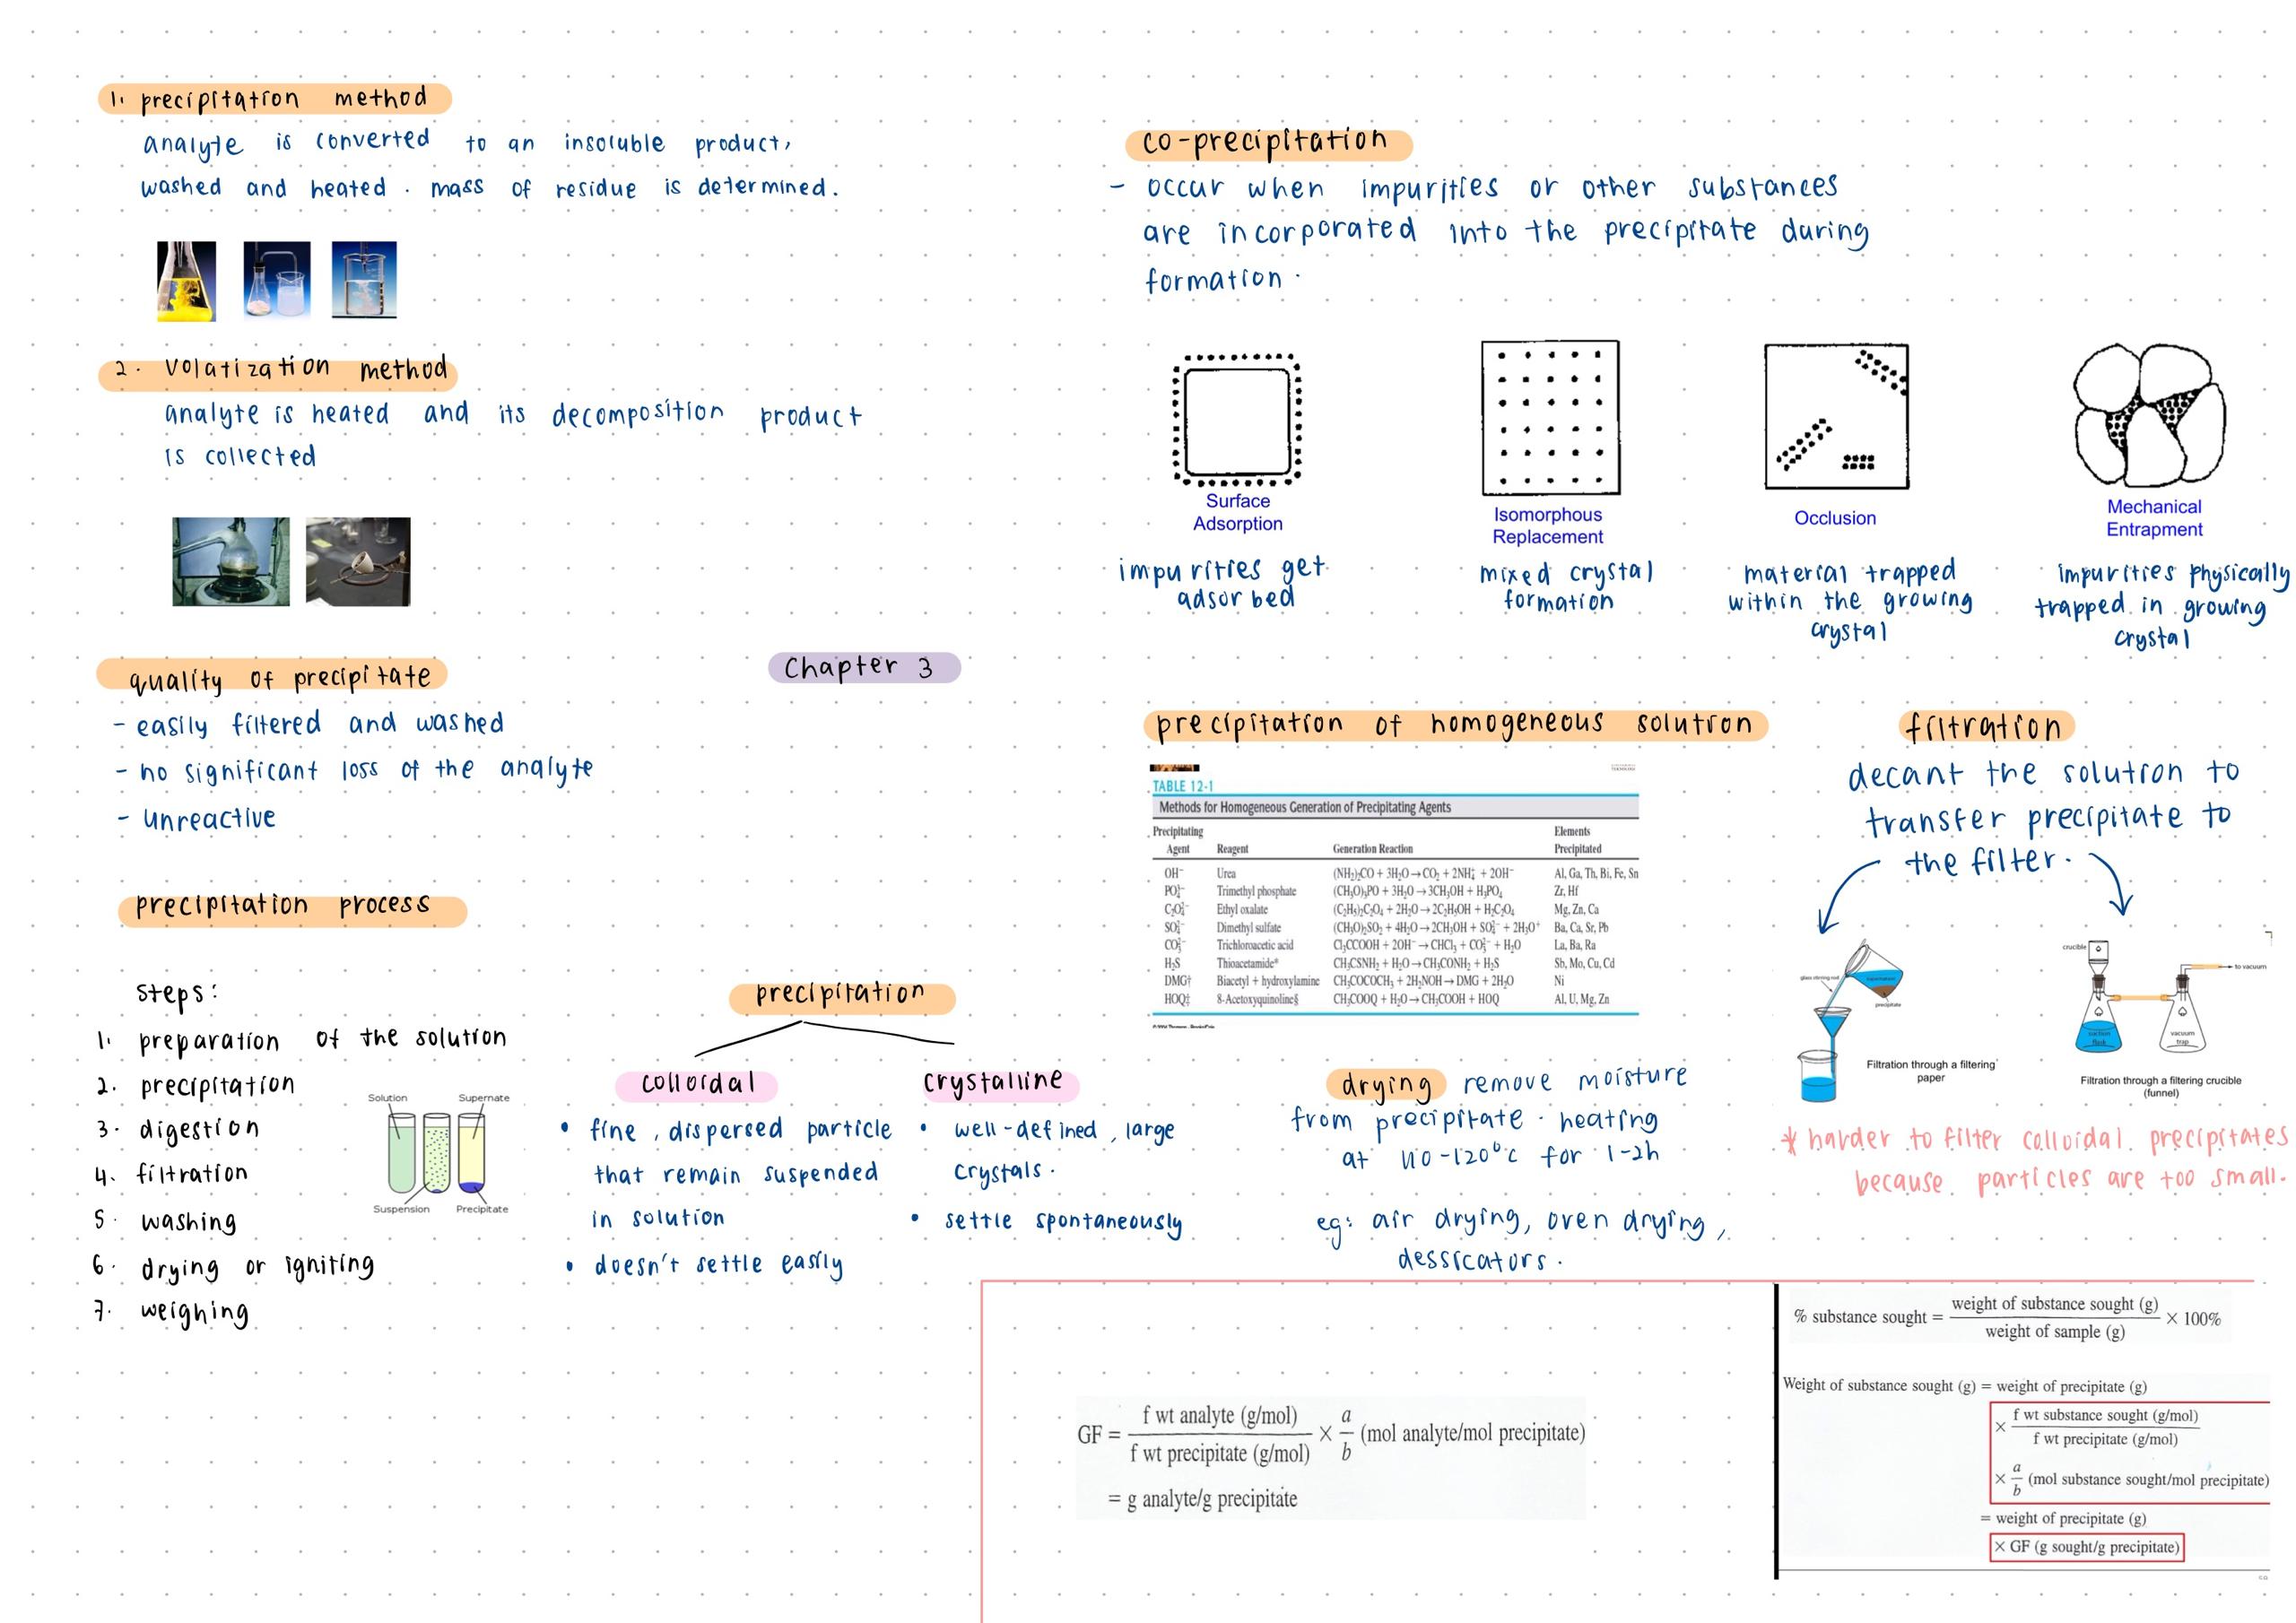 1. precipitation method
analyte is converted to an insoluble product,
washed and heated. mass of residue is determined.
2. volatization method
analyte is heated and its decomposition product
is collected
quality of precipitate
- easily filtered and washed
- no significant loss of the analyte
- unreactive
precipitation process
steps:
1. preparation of the solution
2. precipitation
3. digestion
4. filtration
5. washing
6. drying or igniting
7. weighing
Solution Supernate
Suspension Precipitate
Chapter 3
precipitation
colloidal
• fine, dispersed particle
that remain suspended
in solution
• doesn't settle easily
crystalline
• well-defined, large
crystals.
• settle spontaneously
co-precipitation
- occur when impurities or other substances
are incorporated into the precipitate during
formation.
Surface
Adsorption
impurities get
adsorbed
Isomorphous
Replacement
mixed crystal
formation
Occlusion
material trapped
within the growing
crystal
Mechanical
Entrapment
impurities physically
trapped in growing
crystal
precipitation of homogeneous solution
TABLE 12-1
Methods for Homogeneous Generation of Precipitating Agents
Precipitating Agent Reagent Generation Reaction Elements Precipitated
OH⁻ Urea (NH₂)₂CO + 3H₂O → CO₂ + 2NH₄⁺ + 2OH⁻ Al, Ga, Th, Bi, Fe, Sn
PO₄³⁻ Trimethyl phosphate (CH₃O)₃PO + 3H₂O → 3CH₃OH + H₃PO₄ Zr, Hf
C₂O₄²⁻ Ethyl oxalate (C₂H₅)₂C₂O₄ + 2H₂O → 2C₂H₅OH + H₂C₂O₄ Mg, Zn, Ca
SO₄²⁻ Dimethyl sulfate (CH₃O)₂SO₂ + 4H₂O → 2CH₃OH + SO₄²⁻ + 2H₃O⁺ Ba, Ca, Sr, Pb
CO₃²⁻ Trichloroacetic acid Cl₃CCOOH + 2OH⁻ → CHCl₃ + CO₃²⁻ + H₂O La, Ba, Ra
H₂S Thioacetamide* CH₃CSNH₂ + H₂O → CH₃CONH₂ + H₂S Sb, Mo, Cu, Cd
DMG† Biacetyl + hydroxylamine CH₃COCOCH₃ + 2H₂NOH → DMG + 2H₂O Ni
HOQ‡ 8-Acetoxyquinoline§ CH₃COOQ + H₂O → CH₃COOH + HOQ Al, U, Mg, Zn
filtration
decant the solution to
transfer precipitate to
the filter.
glass stirring rod
supernatant
precipitate
Filtration through a filtering
paper
crucible
to vacuum
suction
flask
vacuum
trap
Filtration through a filtering crucible
(funnel)
* harder to filter colloidal precipitates
because particles are too small.
drying remove moisture
from precipitate. heating
at 110-120°c for 1-2h
eg: air drying, oven drying,
dessicators.
GF = f wt analyte (g/mol) / f wt precipitate (g/mol) × a/b (mol analyte/mol precipitate)
= g analyte/g precipitate
% substance sought = weight of substance sought (g) / weight of sample (g) × 100%
Weight of substance sought (g) = weight of precipitate (g)
× f wt substance sought (g/mol) / f wt precipitate (g/mol)
× a/b (mol substance sought/mol precipitate)
= weight of precipitate (g)
× GF (g sought/g precipitate)